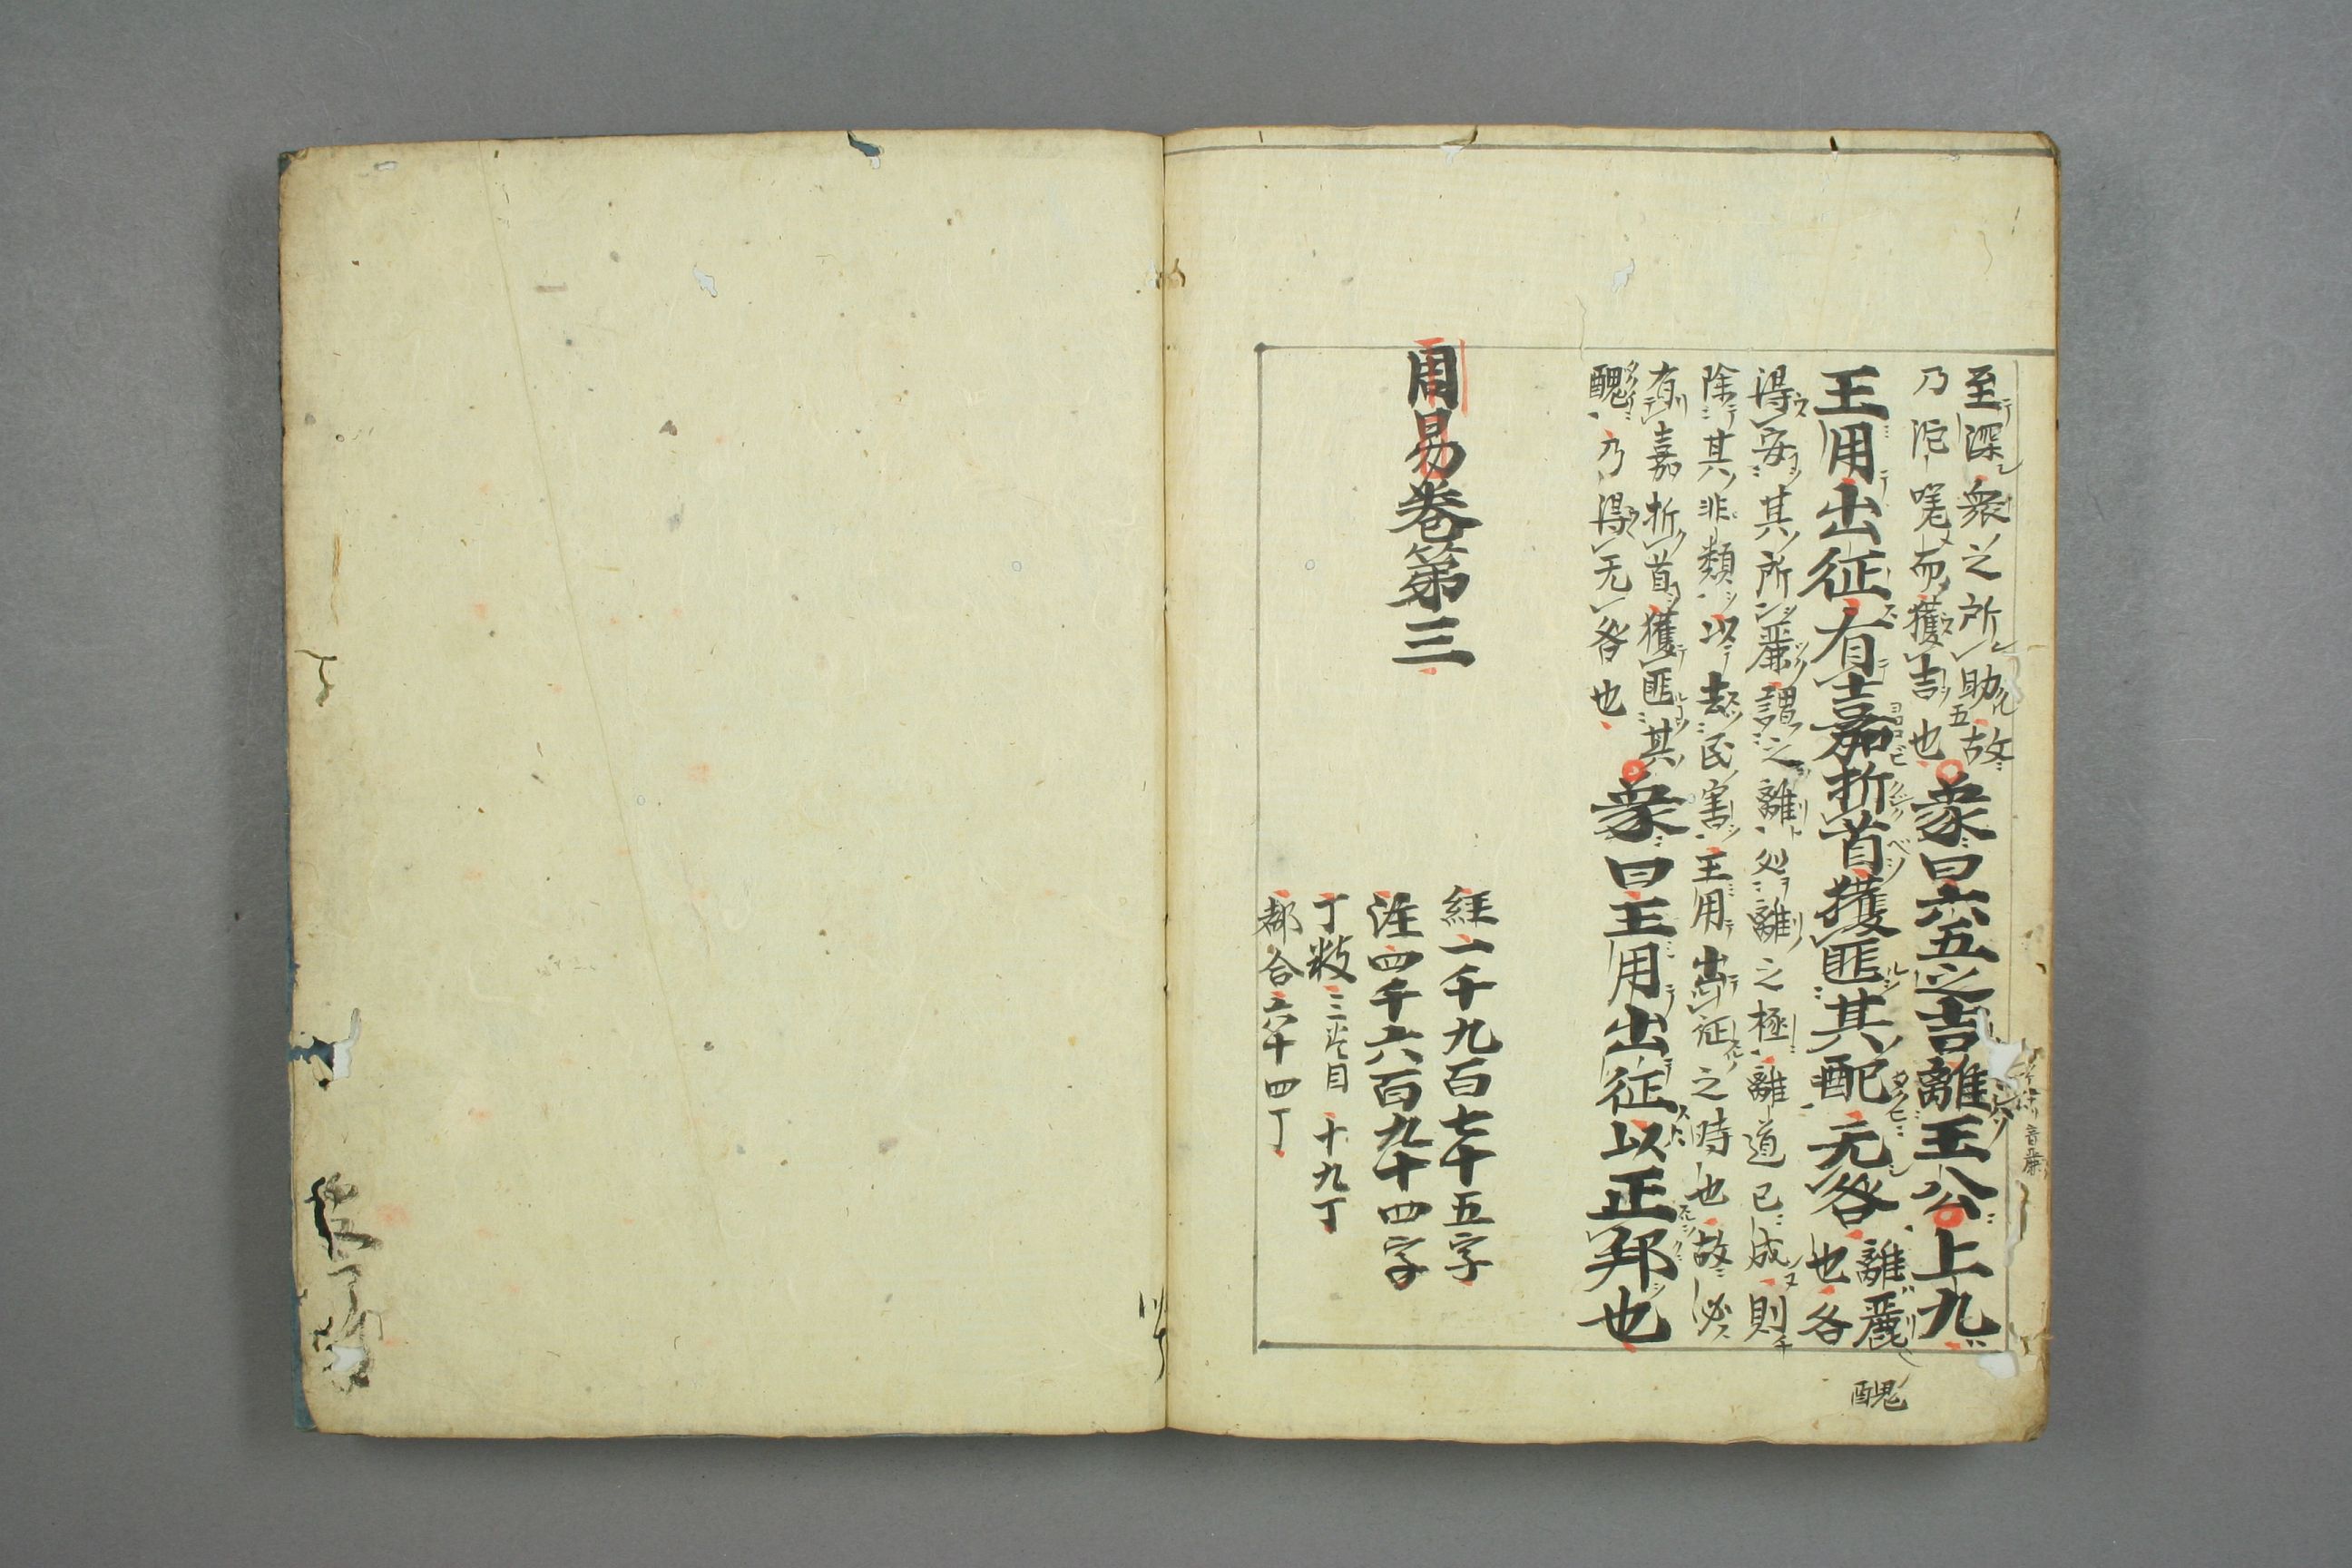 至深衆之所助故
乃沱嗟而獲吉也
象曰六五之吉離王公上九
王用出征有嘉折首獲匪其配无咎
離麗
也各
得安其所麗謂之離処離之極離道已成則
除其非類以去民害王用出征之時也故必
有嘉折首獲匪其
醜乃得无咎也
象曰王用出征以正邦也
醜
周易卷第三
經一千九百七十五字
注四千六百九十四字
丁数三巻目 十九丁
都合六十四丁